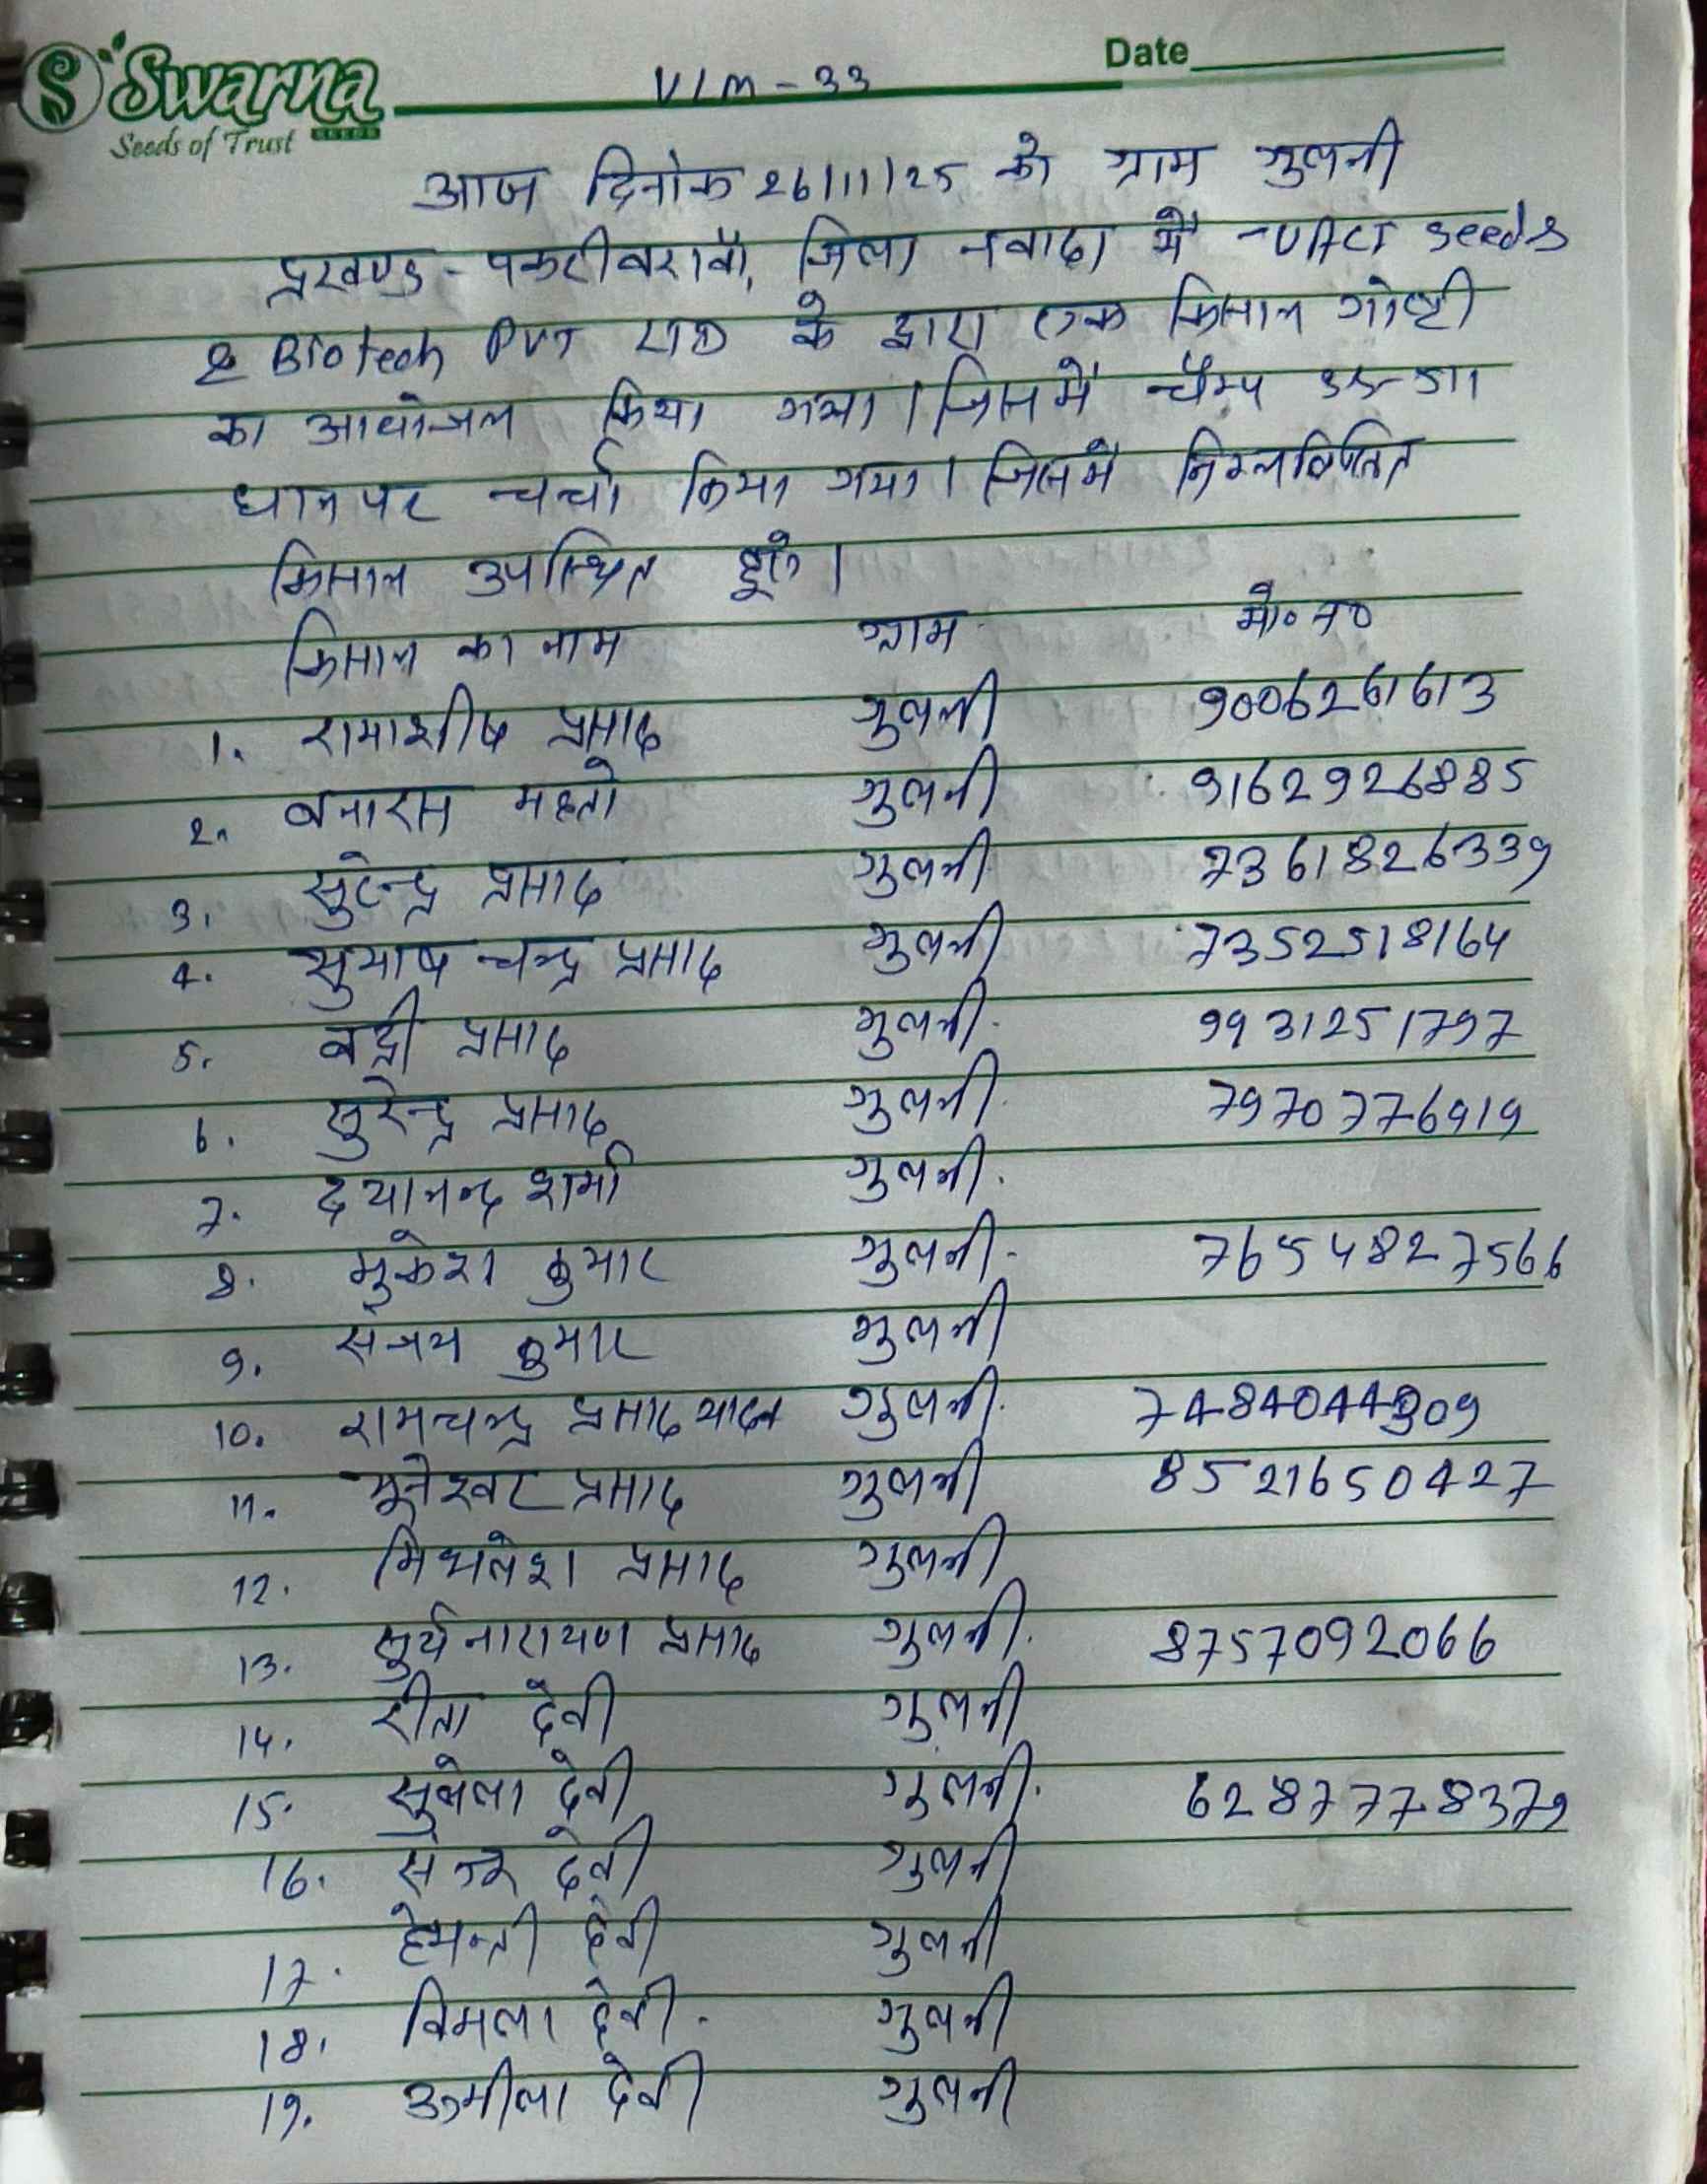 Swarna
SEEDS
Seeds of Trust
VLM - 33
Date
आज दिनांक 26/11/25 को ग्राम गुलनी
प्रखण्ड - पकरीबरावाँ, जिला नवादा में - Seeds
& Biotech Pvt LTD के द्वारा एक किसान गोष्ठी
का आयोजन किया गया। जिसमें चैम्प SS-511
धान पर चर्चा किया गया। जिसमें निम्नलिखित
किसान उपस्थित हुए।
किसान का नाम ग्राम मो० न०
1. रामाशीष प्रसाद गुलनी 9006261613
2. बनारस महतो गुलनी 9162926885
3. सुरेन्द्र प्रसाद गुलनी 7361826339
4. सुभाष चन्द्र प्रसाद गुलनी 7352518164
5. बद्री प्रसाद गुलनी. 9931251797
6. सुरेन्द्र प्रसाद गुलनी. 7970776919
7. दयानन्द शर्मा गुलनी.
8. मुकेश कुमार गुलनी. 7654827566
9. संजय कुमार गुलनी
10. रामचन्द्र प्रसाद यादव गुलनी. 7484044909
11. मुनेश्वर प्रसाद गुलनी 8521650427
12. मिथलेश प्रसाद गुलनी
13. सुर्यनारायण प्रसाद गुलनी. 8757092066
14. रीता देवी गुलनी
15. सुबेला देवी गुलनी. 6287778379
16. देवी गुलनी
17. हेमन्ती देवी गुलनी
18. विमला देवी. गुलनी
19. उर्मीला देवी गुलनी